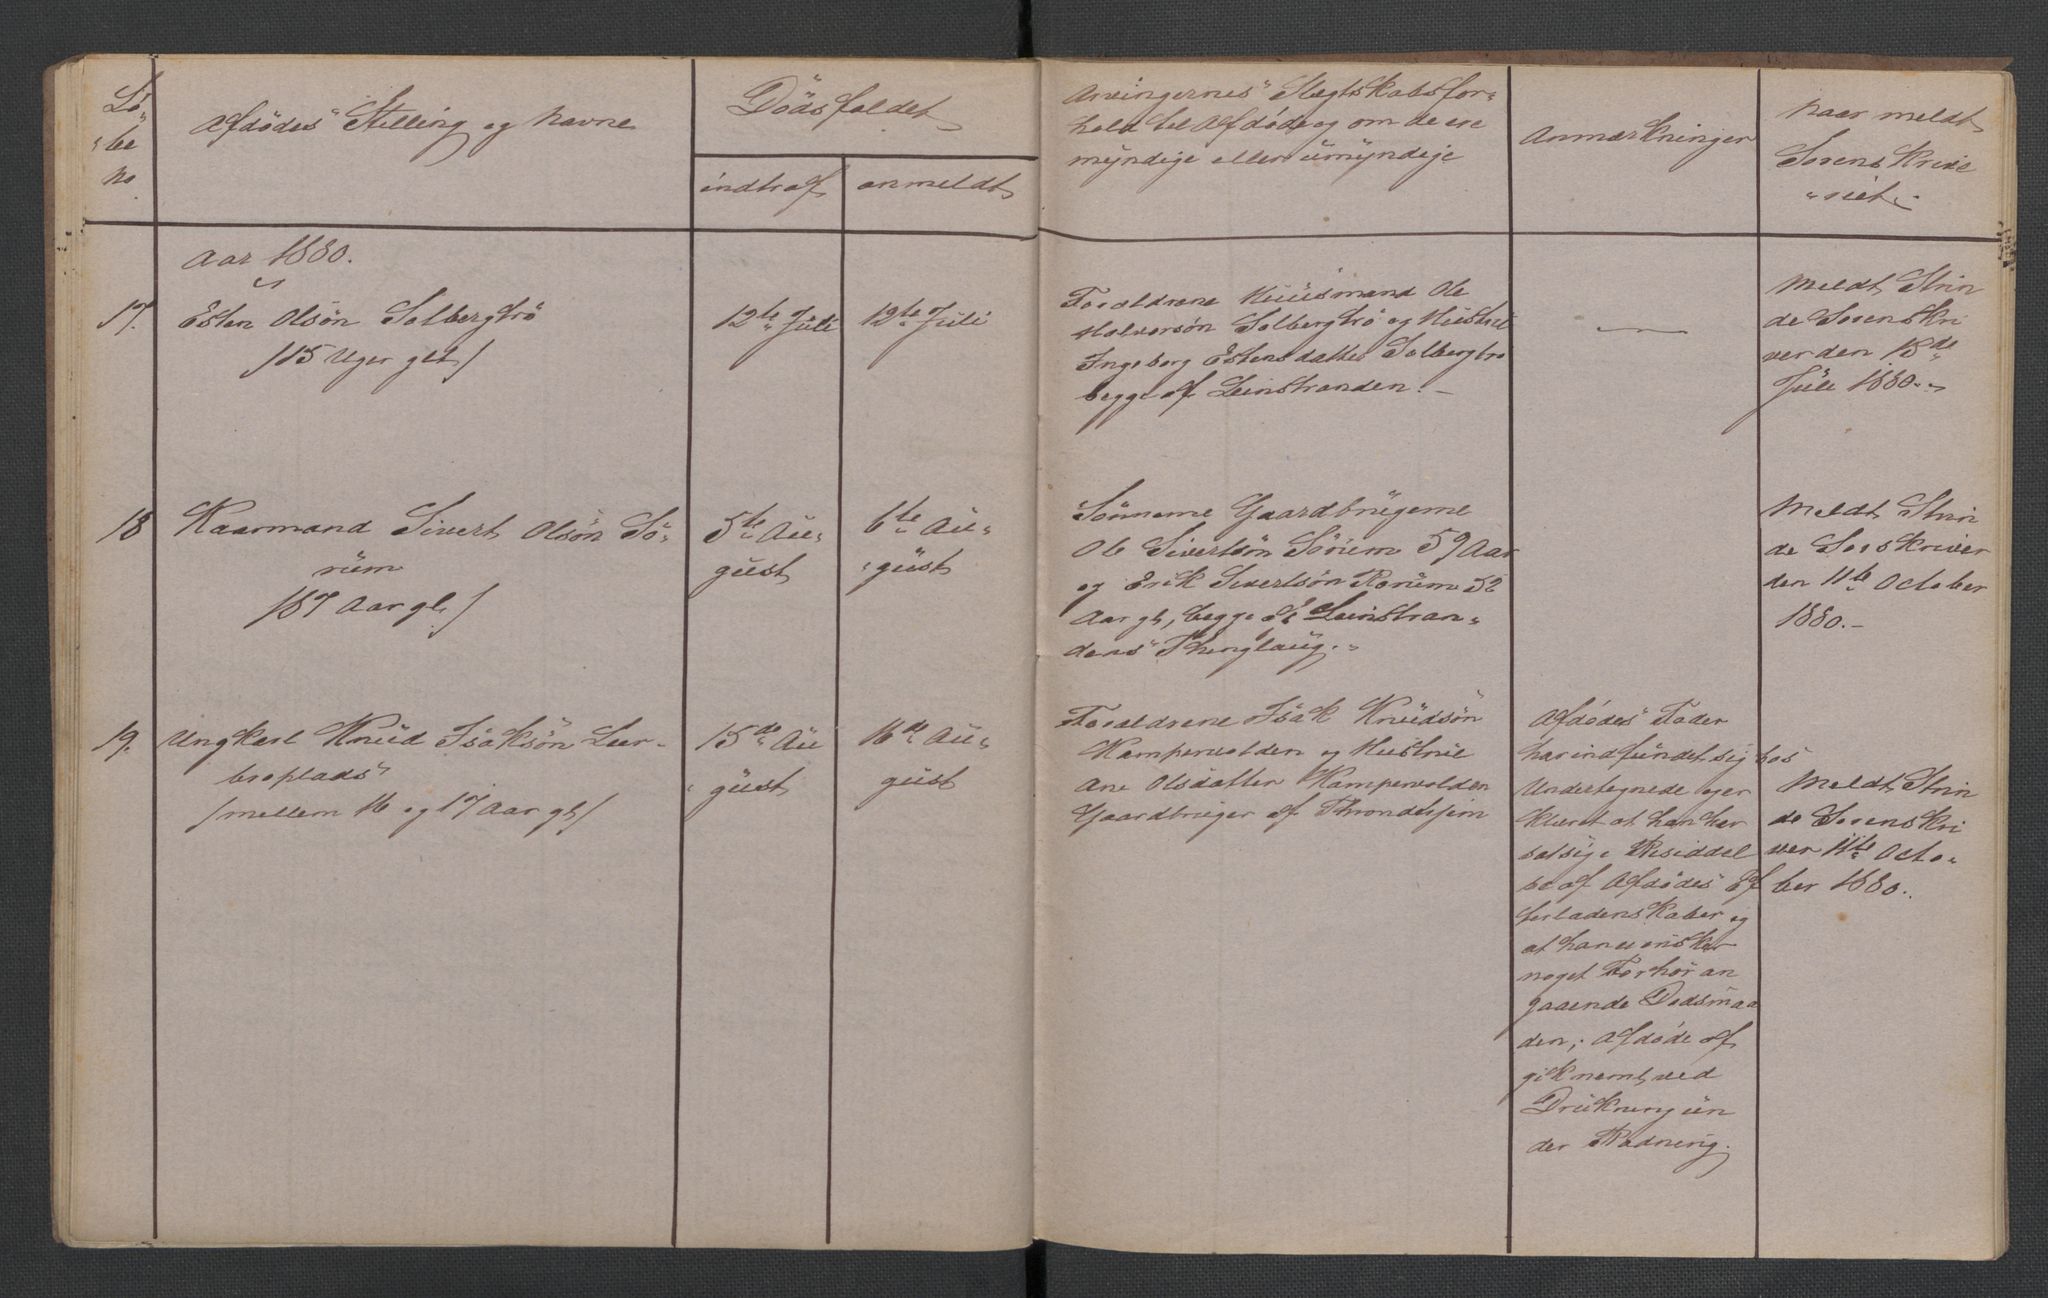 Lö
"be
no.
Afdödes" Stilling og navne
Dödsfaldet
indtraf
anmeldt
Arvingernes" Slegtskabsfor-
hold til Afdöde og om de ere
myndige eller umyndige
Anmærkninger
naar meldt
Sorenskrive
"riet.
Aar 1880.
17.
Esten Olsön Solbergtrö
/15 Uger gl/
12te Juli
19te Juli
Forældrene Huusmand Ole
Halvorsön Solbergtrö og Hustru
Ingeborg Estensdatter Solbergtrö
begge af Leinstranden.
Meldt Strin
de Sorenskri
ver den 15de
Juli 1880.
18
Kaarmand Sivert Olsön Sö-
rum
/87 Aar gl/
5te Au-
gust
6te Au-
gust
Sönnerne Gaardbrugerne
Ole Sivertsön Sörum 59 Aar
og Erik Sivertsön Rorum 52
Aar gl, begge af Leinstran-
dens" Thinglaug.
Meldt Strin
de Sorskriver
den 11te October
1880.-
19.
Ungkarl Knud Isaksön Leer-
broplads"
/mellem 16 og 17 Aar gl/
15de Au
gust
16de Au-
gust
Forældrene Isak Knudsön
Kampervolden og Hustrue
Ane Olsdatter Kampervolden
Gaardbruger af Throndhjem
Afdödes" Fader
har indfundet sig hos
Undertegnede og er
klæret at han har
sat sig i Besiddel
se af Afdödes" Ef
terladenskaber og
at han ei önsker
noget Forhör an
gaaende Dödsmaa
den; Afdöde af
gik nemt ved
Drukning un
der Badning.
Meldt Strin
de Sorenskri
ver 11te Octo-
ber 1880.